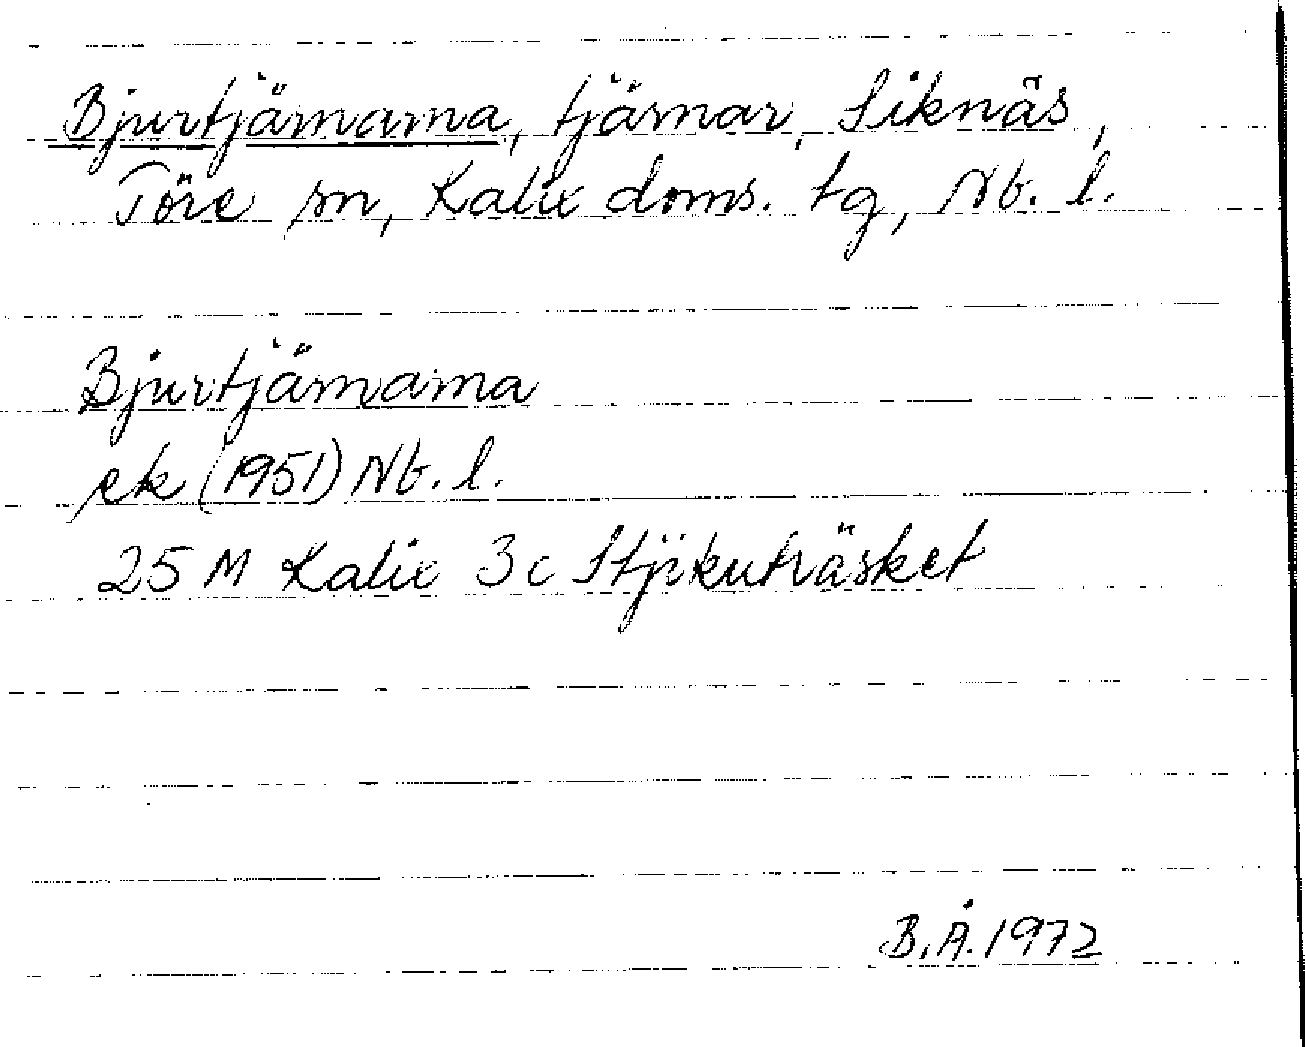 Bjurtjärnarna, tjärnar, Siknäs,
Töre sn, Kalix doms. tg, Nb. l.
Bjurtjärnarna
ek (1951) Nb. l.
25 M Kalix 3c Stjikuträsket
B.Å. 1972